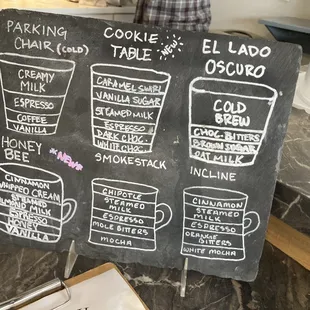 PARKING
CHAIR (COLD)
CREAMY
MILK
ESPRESSO
COFFEE
VANILLA
COOKIE
TABLE
NEW
CARAMEL SWIRL
VANILLA SUGAR
STEAMED MILK
ESPRESSO
DARK CHOC
WHITE CHOC
EL LADO
OSCURO
COLD
BREW
CHOC-BITTERS
BROWN SUGAR
OAT MILK
HONEY
BEE
"NEW"
CINNAMON
WHIPPED CREAM
STEAMED
ALMOND MILK
ESPRESSO
HONEY
VANILLA
SMOKESTACK
CHIPOTLE
STEAMED
MILK
ESPRESSO
MOLE BITTERS
MOCHA
INCLINE
CINNAMON
STEAMED
MILK
ESPRESSO
ORANGE
BITTERS
WHITE MOCHA